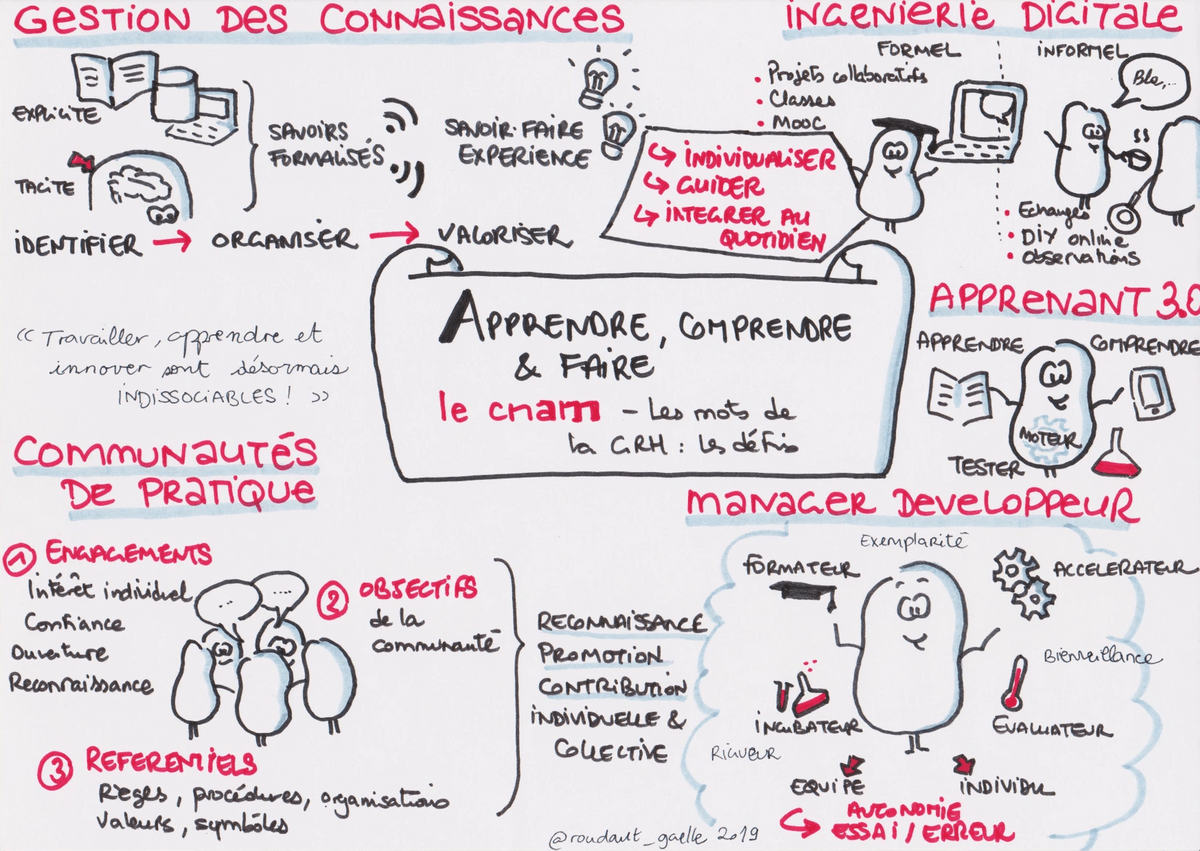 GESTION DES CONNAISSANCES
EXPLICITE
TACITE
SAVOIRS
FORMALISÉS
SAVOIR-FAIRE
EXPERIENCE
IDENTIFIER → ORGANISER → VALORISER
INGENIERIE DIGITALE
FORMEL
• Projets collaboratifs
• Classes
• MOOC
INFORMEL
Bla,..
• Echanges
• DIY online
• observations
↳ INDIVIDUALISER
↳ GUIDER
↳ INTEGRER AU
QUOTIDIEN
APPRENDRE, COMPRENDRE
& FAIRE
le cnam - Les mots de
la GRH : les défis
« Travailler, apprendre et
innover sont désormais
INDISSOCIABLES ! »
APPRENANT 3.0
APPRENDRE
COMPRENDRE
MOTEUR
TESTER
COMMUNAUTÉS
DE PRATIQUE
1 ENGAGEMENTS
Intérêt individuel
Confiance
Ouverture
Reconnaissance
...
...
2 OBJECTIFS
de la
communauté
3 REFERENTIELS
Règes, procédures, organisations
Valeurs, symbôles
RECONNAISSANCE
PROMOTION
CONTRIBUTION
INDIVIDUELLE &
COLLECTIVE
MANAGER DEVELOPPEUR
Exemplarité
FORMATEUR
ACCELERATEUR
Bienveillance
INCUBATEUR
EVALUATEUR
Rigueur
EQUIPE
INDIVIDU
↳ AUTONOMIE
ESSAI / ERREUR
@roudaut_gaelle 2019